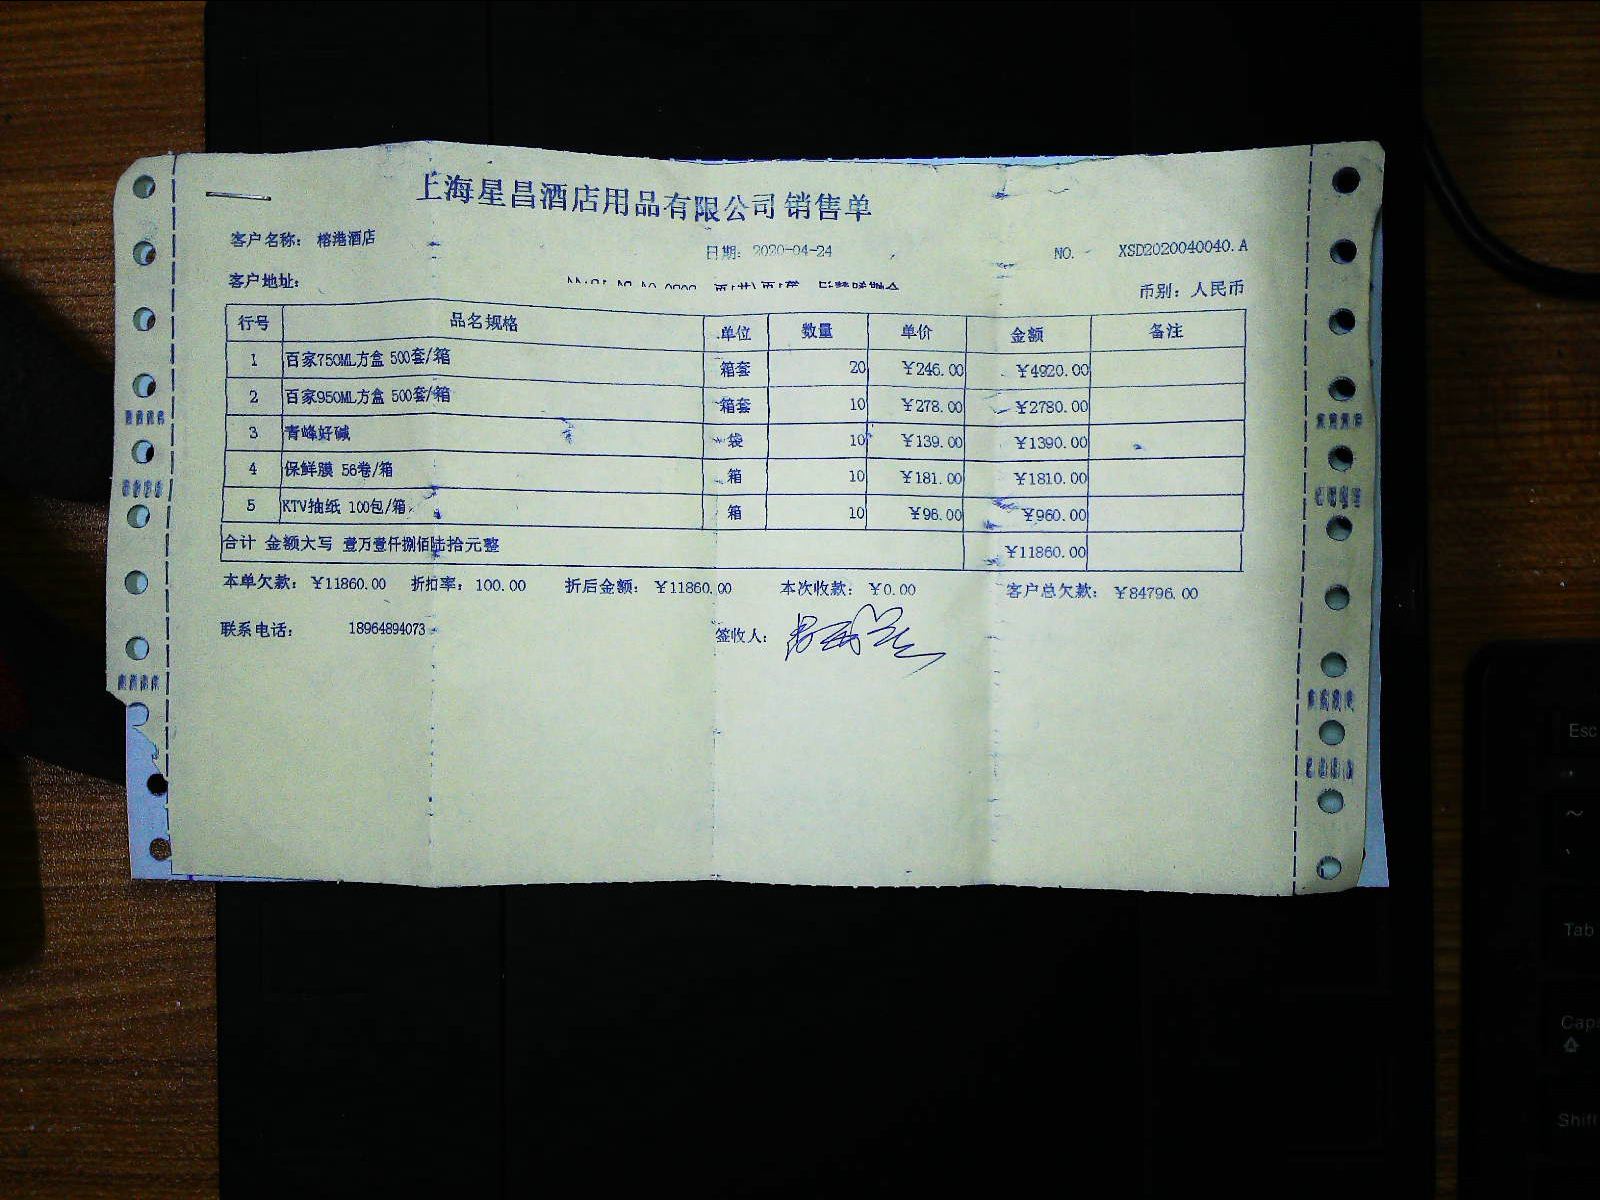 上海星昌酒店用品有限公司销售单
客户名称： 榕港酒店 日期： 2020-04-24 NO. XSD2020040040.A
客户地址： 币别： 人民币
行号 品名规格 单位 数量 单价 金额 备注
1 百家750ML方盒 500套/箱 箱套 20 ￥246.00 ￥4920.00
2 百家950ML方盒 500套/箱 箱套 10 ￥278.00 ￥2780.00
3 青峰好碱 袋 10 ￥139.00 ￥1390.00
4 保鲜膜 56卷/箱 箱 10 ￥181.00 ￥1810.00
5 KTV抽纸 100包/箱 箱 10 ￥96.00 ￥960.00
合计 金额大写 壹万壹仟捌佰陆拾元整 ￥11860.00
本单欠款： ￥11860.00 折扣率： 100.00 折后金额： ￥11860.00 本次收款： ￥0.00 客户总欠款： ￥84796.00
联系电话： 18964894073 签收人：
Esc
~
Tab
Caps
Shift